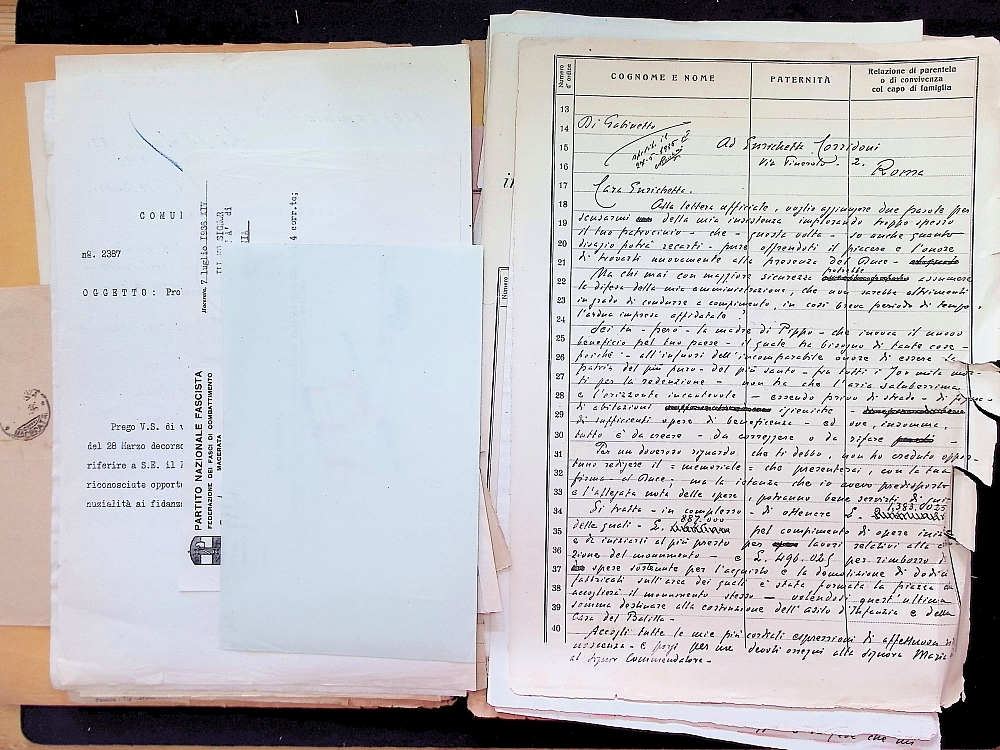 COMUN
nº. 2387
OGGETTO: Pro
Prego V.S. di v
del 28 Marzo decorso
riferire a S.E. il
riconosciute opportu
nuzialità ai fidanz
PARTITO NAZIONALE FASCISTA
FEDERAZIONE DEI FASCI DI COMBATTIMENTO
MACERATA
Macerata, 7 luglio 1936 XIV
4 corr.te;
Numero
Numero d'ordine
COGNOME E NOME
PATERNITÀ
Relazione di parentela
o di convivenza
col capo di famiglia
13
14
15
16
17
18
19
20
21
22
23
24
25
26
27
28
29
30
31
32
33
34
35
36
37
38
39
40
Di Gabinetto
Ad Enrichetta Corridoni
Via Pinerolo. 2.
Roma
Cara Enrichetta.
Alla lettera ufficiale, voglio aggiungere due parole per
scusarmi della mia insistenza implorando troppo spesso
il tuo patrocinio - che - questa volta - so anche quanto
disagio potrà recarti - pure offrendoti il piacere e l'onore
di trovarti nuovamente alla presenza del Duce -
Ma chi mai con maggiore sicurezza potrebbe assumere
la difesa della mia amministrazione, che non sarebbe altrimenti
in grado di condurre a compimento, in così breve periodo di tempo,
l'ardua impresa affidatale?
Sei tu - però - la madre di Pippo - che invoca il nuovo
beneficio pel tuo paese - il quale ha bisogno di tante cose -
poiché - all'infuori dell'incomparabile onore di essere la
patria del più puro - del più santo - fra tutti i
ti per la redenzione - non ha che l'aria saluberrima
e l'orizzonte incantevole - essendo privo di strade - di
di abitazioni igieniche -
di sufficienti opere di beneficenza - ed ove, insomma,
tutto è da creare - da correggere o da rifare -
Per un doveroso riguardo che ti debbo, non ho creduto oppor-
tuno redigere il - memoriale - che presenterai, con la tua
firma - al Duce: ma la istanza che io avevo predisposto
e l'allegata nota delle spese, potranno bene servirti di gui
Si tratta - in complesso - di ottenere £. 1,383.025
delle quali - £. 887.000 pel compimento di opere
e da iniziarsi al più presto per lavori relativi alla
zione del monumento - e £. 496.025 per rimborso di
spese sostenute per l'acquisto e la demolizione di dodici
fabbricati sull'area dei quali è stata formata la piazza che
accoglierà il monumento stesso - volendosi quest'ultima
somma destinare alla costruzione dell'asilo d'Infanzia e della
Casa del Balilla -
Accogli tutte le mie più cordiali espressioni di affettuosa ri
noscenza - e porgi per me devoti ossequi alla signora Maria
al signor Commendatore -